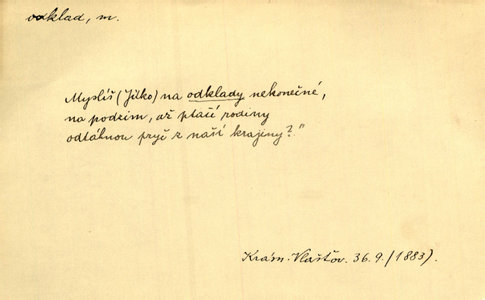 odklad, m.
Myslíš (Jitko) na odklady nekonečné,
na podzim, až ptačí rodiny
odtáhnou pryč z naší krajiny?"
Krásn.-Vlašťov. 36.9. (1883).